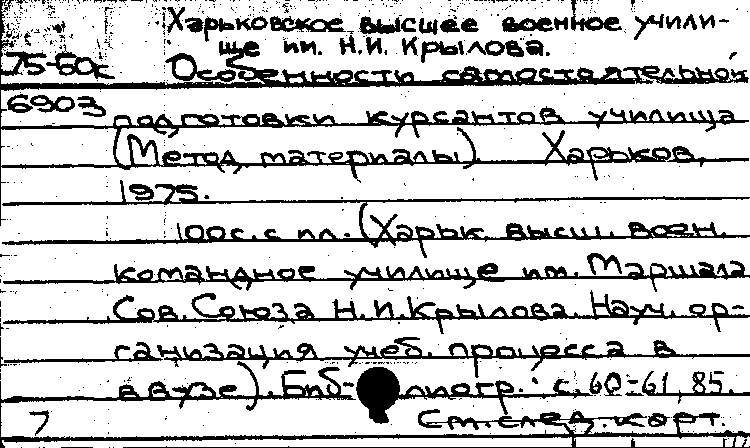 Харьковское высшее военное учили-
ще им. Н.И. Крылова.
75-60к Особенности самостоятельной
6903 подготовки курсантов училища
(Метод. материалы). Харьков,
1975.
100с. с ил. (Харьк. высш. воен.
командное училище им. Маршала
Сов. Союза Н.И. Крылова. Науч. ор-
ганизация учеб. процесса в
ввузе). Биб-лиогр.: с. 60-61, 85.
7 См. след. карт.